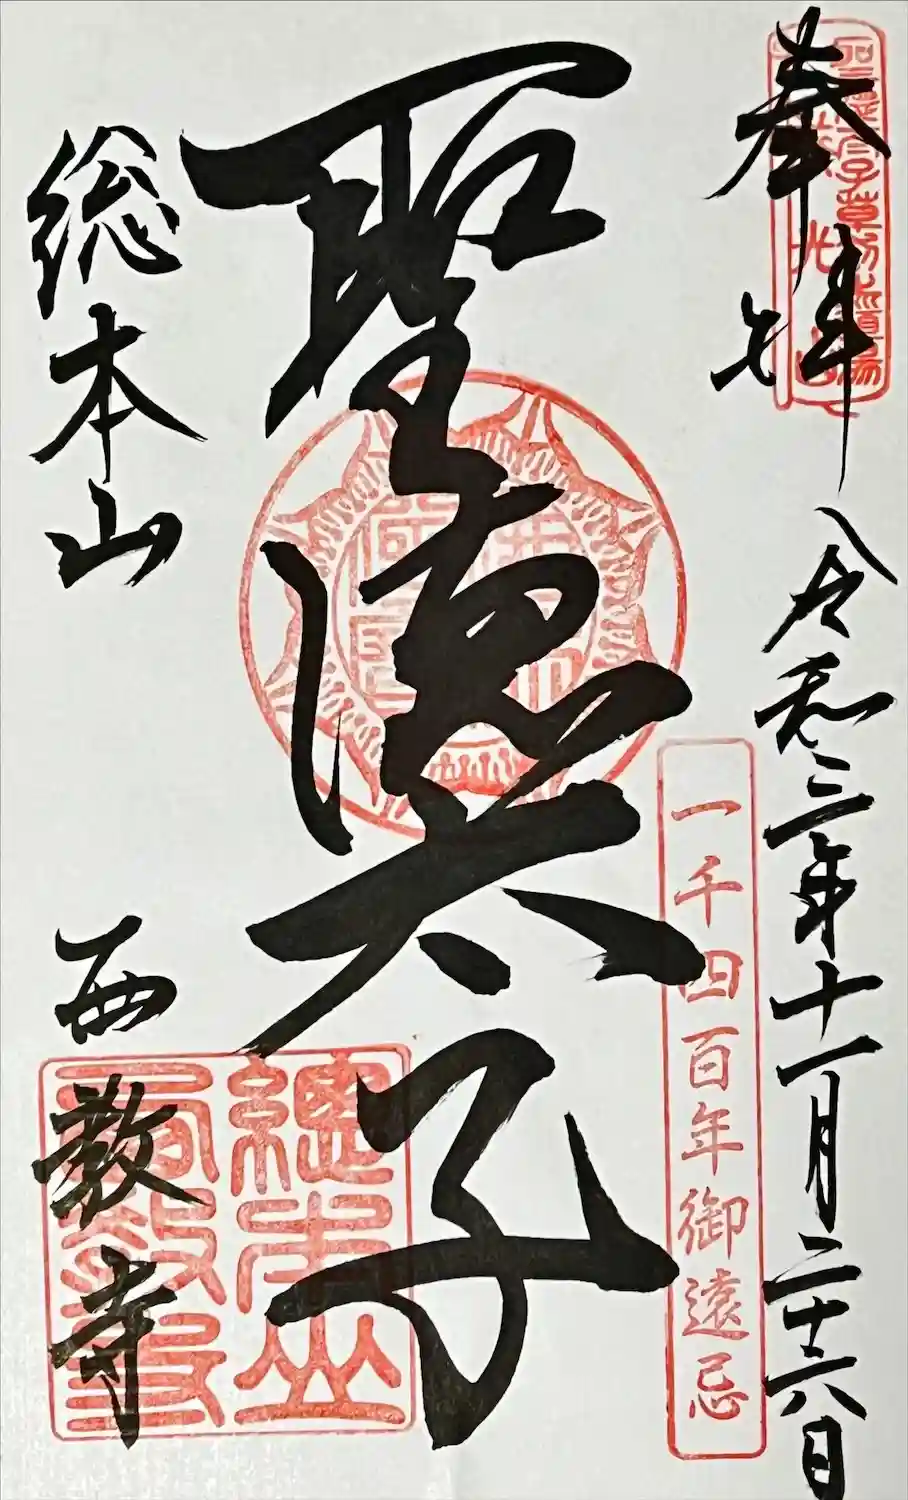 奉拝
令和三年十一月二十六日
一千四百年御遠忌
聖徳太子
総本山
西教寺
總本山
西教寺